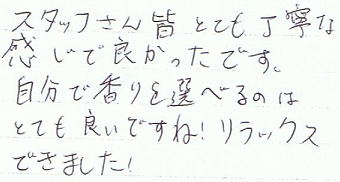 スタッフさん皆とても丁寧な
感じで良かったです。
自分で香りを選べるのは
とても良いですね!リラックス
できました!